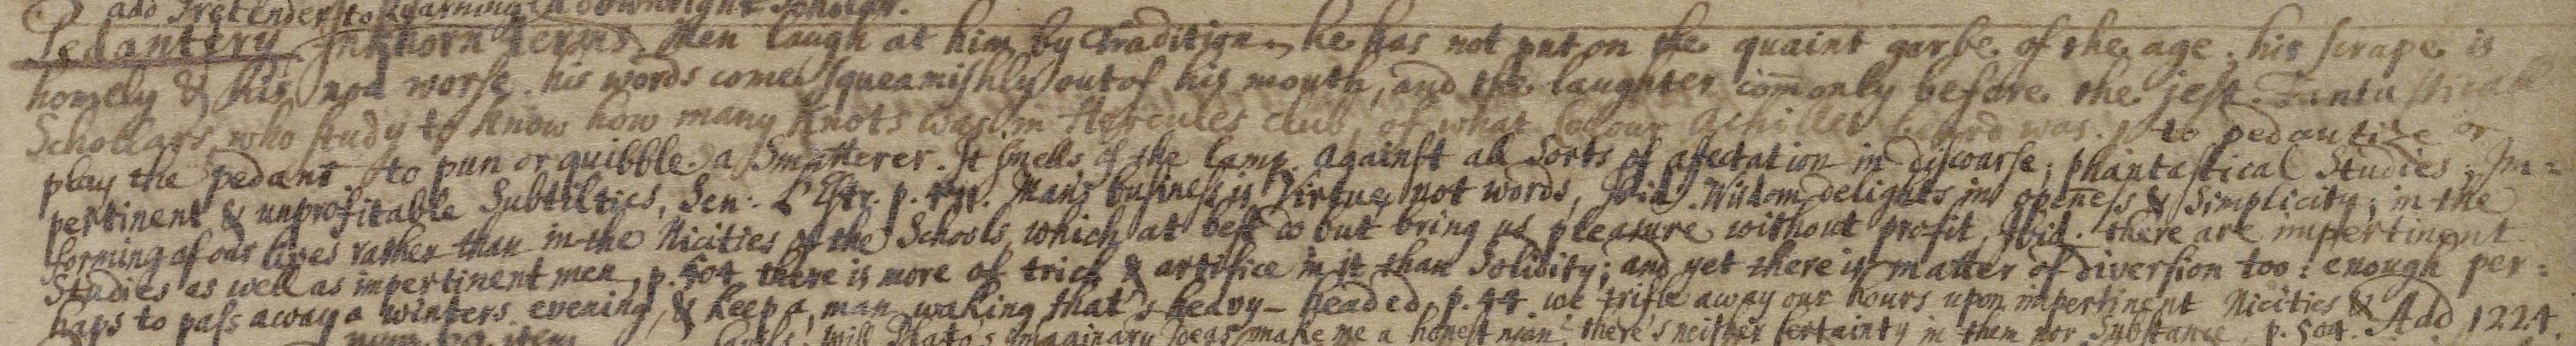 add Pretenders to Learning. A downright Scholar.
Pedantery Inkhorn terms. Men laugh at him by Tradition. he has not put on the quaint garbe of the age. his scrape is
homely & his nod worse. his words come squeamishly out of his mouth, and the laughter com̄only before the jest. Fantasticall
Schollars, who study to know how many knots was in Hercules club, of what colour Achilles beard was. to pedantize or
play the pedant to pun or quibble. a Smatterer. It smells of the lamp. against all Sorts of afectation in discourse; phantastical Studies; Im=
pertinent & unprofitable Subtilties, Sen. L'Estr. p. Mans business is Virtue, not words, Ibid. Wisdom delights in openess & Simplicity; in the
forming of our lives rather than in the Nicities of the Schools, which at best do but bring us pleasure without profit, Ibid. there are impertinent
Studies as well as impertinent men, p. 504 there is more of trick & artifice in it than Solidity; and yet there is matter of diversion too: enough per=
haps to pass away a winters evening, & keep a man waking that's heavy-headed. p. 44 we trifle away our hours upon impertinent Nicities & Add 1224.
will Plato's imaginary Ideas make me a honest man? there's neither certainty in them nor Substance, p. 504.